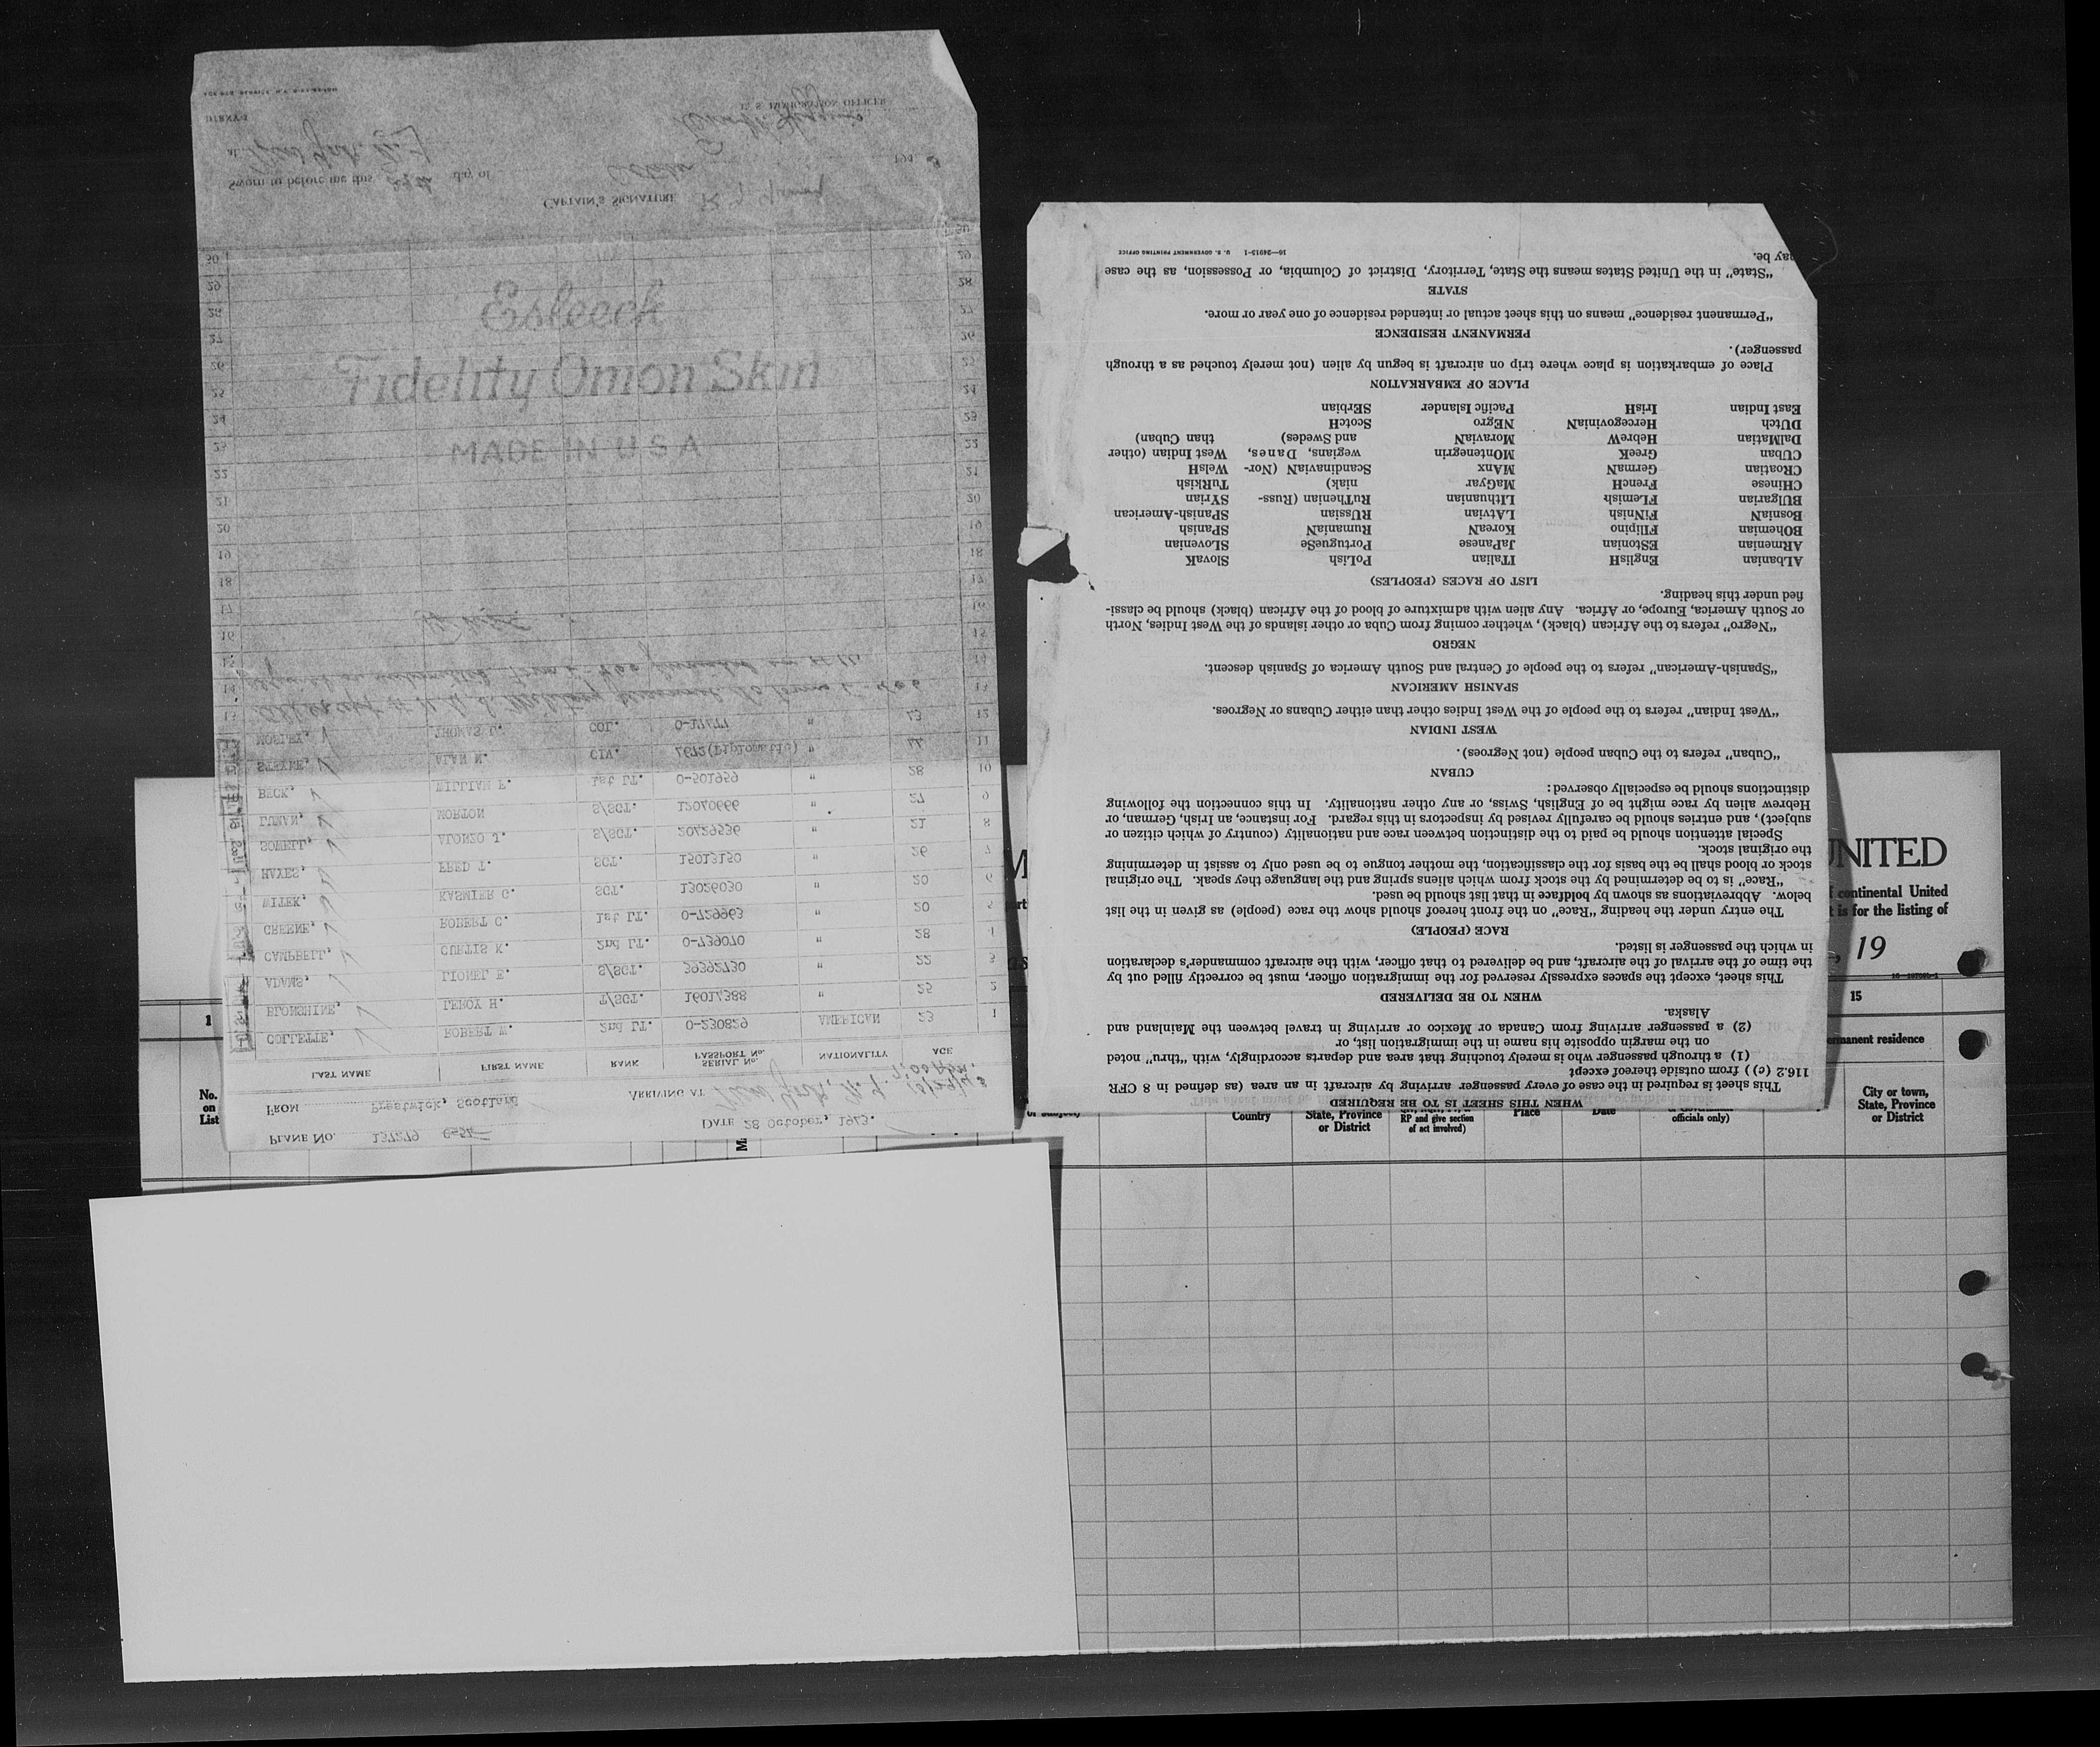 PLANE No. 137279 C-54 DATE 28 October, 1943.
FROM Prestwick, Scotland ARRIVING AT New York, N. Y.
LAST NAME FIRST NAME RANK PASSPORT No. SERIAL No. NATIONALITY AGE
1 COLLETTE, ROBERT W. 2nd LT. 0-230829 AMERICAN 23
2 BLONSHINE, LEROY H. T/SGT. 16017388 " 25
3 ADAMS, LIONEL E. S/SGT. 39392730 " 22
4 CAMPBELL, CURTIS K. 2nd LT. 0-739070 " 28
5 GREENE, ROBERT C. 1st LT. 0-729963 20
6 WITEK, KASMIER G. SGT. 13026030 " 20
7 HAYES, FRED T. SGT. 15013150 " 26
8 SOWELL, ALONZO J. S/SGT. 20429536 " 21
9 LUMAN, MORTON S/SGT. 12040666 " 27
10 BECK, WILLIAM F. 1st LT. 0-501959 " 28
11 STEYNE, ALAN N. CIV. 4672(Diplomatic) " 44
12 MOSLEY, THOMAS D. COL. 0-17477 " 43
Esleeck
Fidelity Onion Skin
MADE IN U S A
CAPTAIN'S SIGNATURE
Sworn to before me this 29th day of October 1943
At New York, N.Y.
U. S. IMMIGRATION OFFICER
WHEN THIS SHEET IS TO BE REQUIRED
This sheet is required in the case of every passenger arriving by aircraft in an area (as defined in 8 CFR
116.2 (c) ) from outside thereof except
(1) a through passenger who is merely touching that area and departs accordingly, with "thru" noted
on the margin opposite his name in the immigration list, or
(2) a passenger arriving from Canada or Mexico or arriving in travel between the Mainland and
Alaska.
WHEN TO BE DELIVERED
This sheet, except the spaces expressly reserved for the immigration officer, must be correctly filled out by
the time of the arrival of the aircraft, and be delivered to that officer, with the aircraft commander's declaration
in which the passenger is listed.
RACE (PEOPLE)
The entry under the heading "Race" on the front hereof should show the race (people) as given in the list
below. Abbreviations as shown by boldface in that list should be used.
"Race" is to be determined by the stock from which aliens spring and the language they speak. The original
stock or blood shall be the basis for the classification, the mother tongue to be used only to assist in determining
the original stock.
Special attention should be paid to the distinction between race and nationality (country of which citizen or
subject), and entries should be carefully revised by inspectors in this regard. For instance, an Irish, German, or
Hebrew alien by race might be of English, Swiss, or any other nationality. In this connection the following
distinctions should be especially observed:
CUBAN
"Cuban" refers to the Cuban people (not Negroes).
WEST INDIAN
"West Indian" refers to the people of the West Indies other than either Cubans or Negroes.
SPANISH AMERICAN
"Spanish-American" refers to the people of Central and South America of Spanish descent.
NEGRO
"Negro" refers to the African (black), whether coming from Cuba or other islands of the West Indies, North
or South America, Europe, or Africa. Any alien with admixture of blood of the African (black) should be classi-
fied under this heading.
LIST OF RACES (PEOPLES)
ALbanian EnglisH ITalian PoLish SlovaK
ARmenian EStonian JaPanese PortugueSe SLOvenian
BOhemian FIlipino KoreaN RumaniaN SPanish
BosniaN FiNnish LAtvian RUssian SPAnish-American
BUlgarian FLemish LIthuanian RuThenian (Russ- SYrian
CHinese FrencH MaGyar niak) TuRkish
CRoatian GermaN MAnx ScandinaviaN (Nor- WelsH
CUban GreeK MOntenegrin wegians, Danes, West Indian (other
DalMatian HebreW MoraviaN and Swedes) than Cuban)
DUtch HercegoviniaN NEgro ScotcH
East Indian IrisH Pacific Islander SErbian
PLACE OF EMBARKATION
Place of embarkation is place where trip on aircraft is begun by alien (not merely touched as a through
passenger).
PERMANENT RESIDENCE
"Permanent residence" means on this sheet actual or intended residence of one year or more.
STATE
"State" in the United States means the State, Territory, District of Columbia, or Possession, as the case
may be.
16—24915-1 U. S. GOVERNMENT PRINTING OFFICE
UNITED
continental United
is for the listing of
, 19
1
15
permanent residence
No.
on
List
Country
State, Province
or District
RP and give section
of act involved)
Place
Date
officials only)
City or town,
State, Province
or District